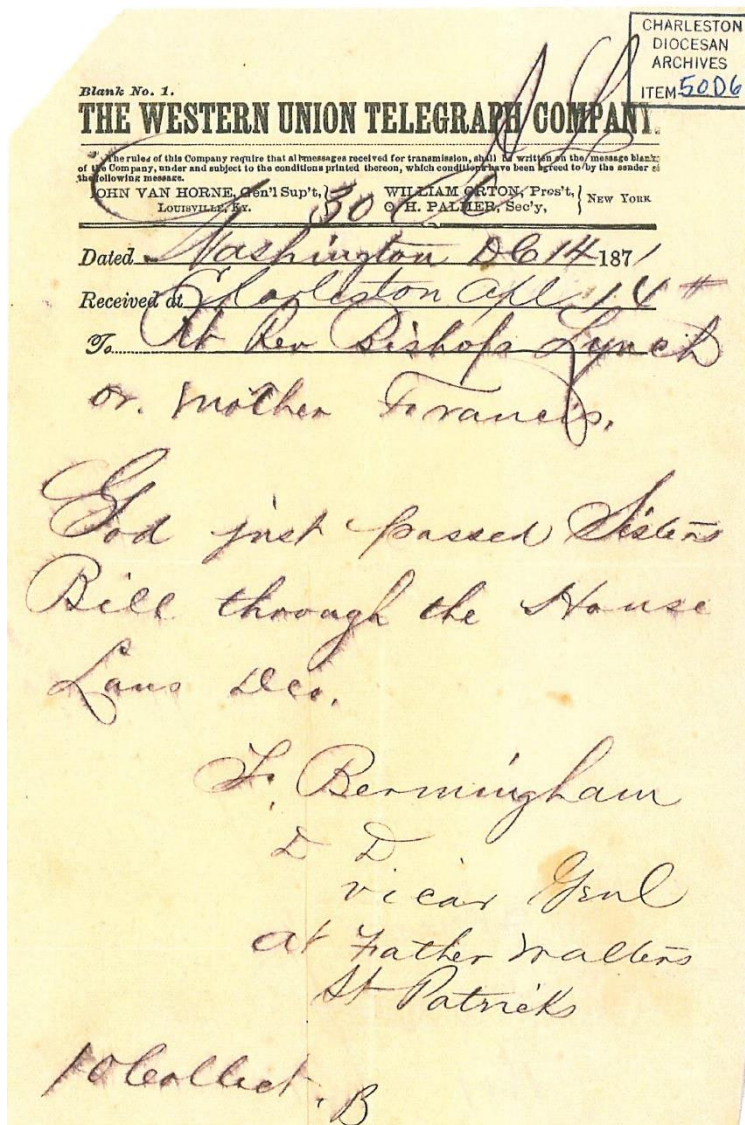 CHARLESTON
DIOCESAN
ARCHIVES
ITEM 50D6
Blank No. 1.
THE WESTERN UNION TELEGRAPH COMPANY.
The rules of this Company require that all messages received for transmission, shall be written on the message blanks
of the Company, under and subject to the conditions printed thereon, which conditions have been agreed to by the sender of
the following message.
JOHN VAN HORNE, Gen'l Sup't, WILLIAM ORTON, Pres't, NEW YORK
LOUISVILLE, KY. O. H. PALMER, Sec'y,
30
Dated Washington DC 14 1871
Received at Charleston Apl 14
To Rt Rev Bishop Lynch
or. Mother Francis.
God just passed Sisters
Bill through the House
Laus Deo.
F. Bermingham
D D
Vicar Genl
at Father Walters
St Patricks
10 Collect. B